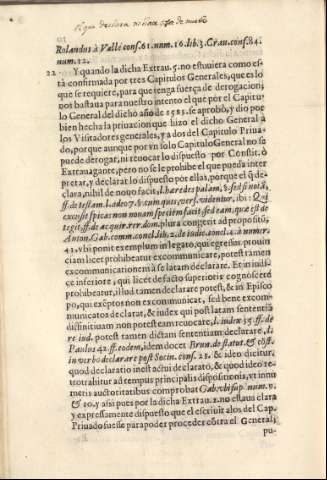 El que declara no hace de nuevo
Rolandus à Valle cons. 61. num. 16. lib. 3. Crau. cons. 84.
num. 12.
22 Y quando la dicha Extrau. 5. no estuuiera como es-
tà confirmada por tres Capitulos Generales, que es lo
que se requiere, para que tenga fuerça de derogacion;
nos bastaua para nuestro intento el que por el Capitu-
lo General del dicho año de 1585. se aprobò, y dio por
bien hecha la priuacion que hizo el dicho General à
los Visitadores generales, y a dos del Capitulo Priua-
do, porque aunque por vn solo Capitulo General no se
puede derogar, ni reuocar lo dispuesto por Constit. ò
Extrauagante, pero no se le prohibe el que pueda inter
pretar, y declarar lo dispuesto por ellas, porque el q̃ de-
clara, nihil de nouo facit, l. hæredes palam, §. sed si notã,
ff. de testam. l. adeo 7. §. cum quis, vers. videntur, ibi: Qui
excusit spicas non nouam speciem facit, sed eam, quæ est de
tegit, ff. de acquir. rer. dom. plura congerit ad propositũ,
Anton. Gab. comm. concl. lib. 2. de iudic. concl. 2. à numer.
42. vbi ponit exemplum in legato, qui egressus prouin
ciam licet prohibeatur excommunicare, potest tamen
excommunicationem à se latam declarare. Et in iudi-
ce inferiore, qui licet de facto superioris cognoscere
prohibeatur, illud tamen declarare potest, & in Episco
po, qui exēptos non excommunicat, sed bene excom-
municatos declarat, & iudex qui post latam sententiã
diffinitiuam non potest eam reuocare, l. iudex 55. ff. de
re iud. potest tamen dictam sententiam declarare, l.
Paulus 42. ff. eodem, idem docet Brun. de statut. & cõst.
in verbo declarare post Socin. cons. 25. & ideo dicitur,
quod declaratio inest actui declarato, & quod ideo re-
trotrahitur ad tempus principalis dispositionis, vt innu
meris auctoritatibus comprobat Gab. vbi sup. num. 9.
& 10. y assi pues por la dicha Extrau. 1. no estaua clara
y expressamente dispuesto que el escriuir alos del Cap.
Priuado fuesse para poder proceder cõtra el General;
pu-